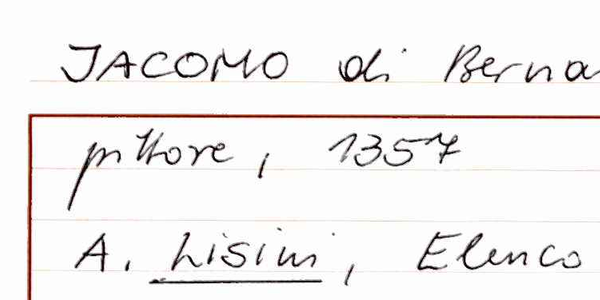 JACOMO di Berna
pittore, 1357
A. Lisini, Elenco